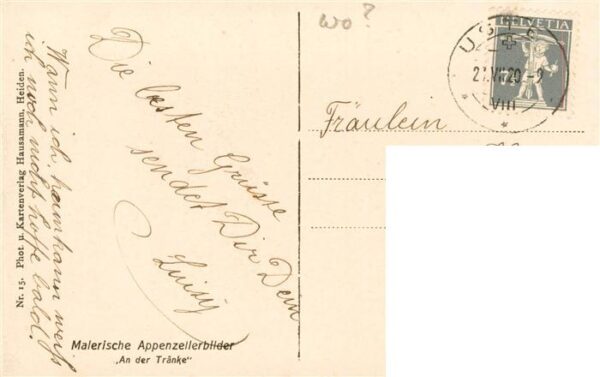 wo?
HELVETIA
USTER
27.VII.20-9
VIII
Fräulein
Die besten Grüsse
sendet Dir Dein
Wann ich heimkann weiss
ich noch nicht, hoffe bald!
Nr. 15. Phot. u. Kartenverlag Hausamann, Heiden.
Malerische Appenzellerbilder
„An der Tränke“